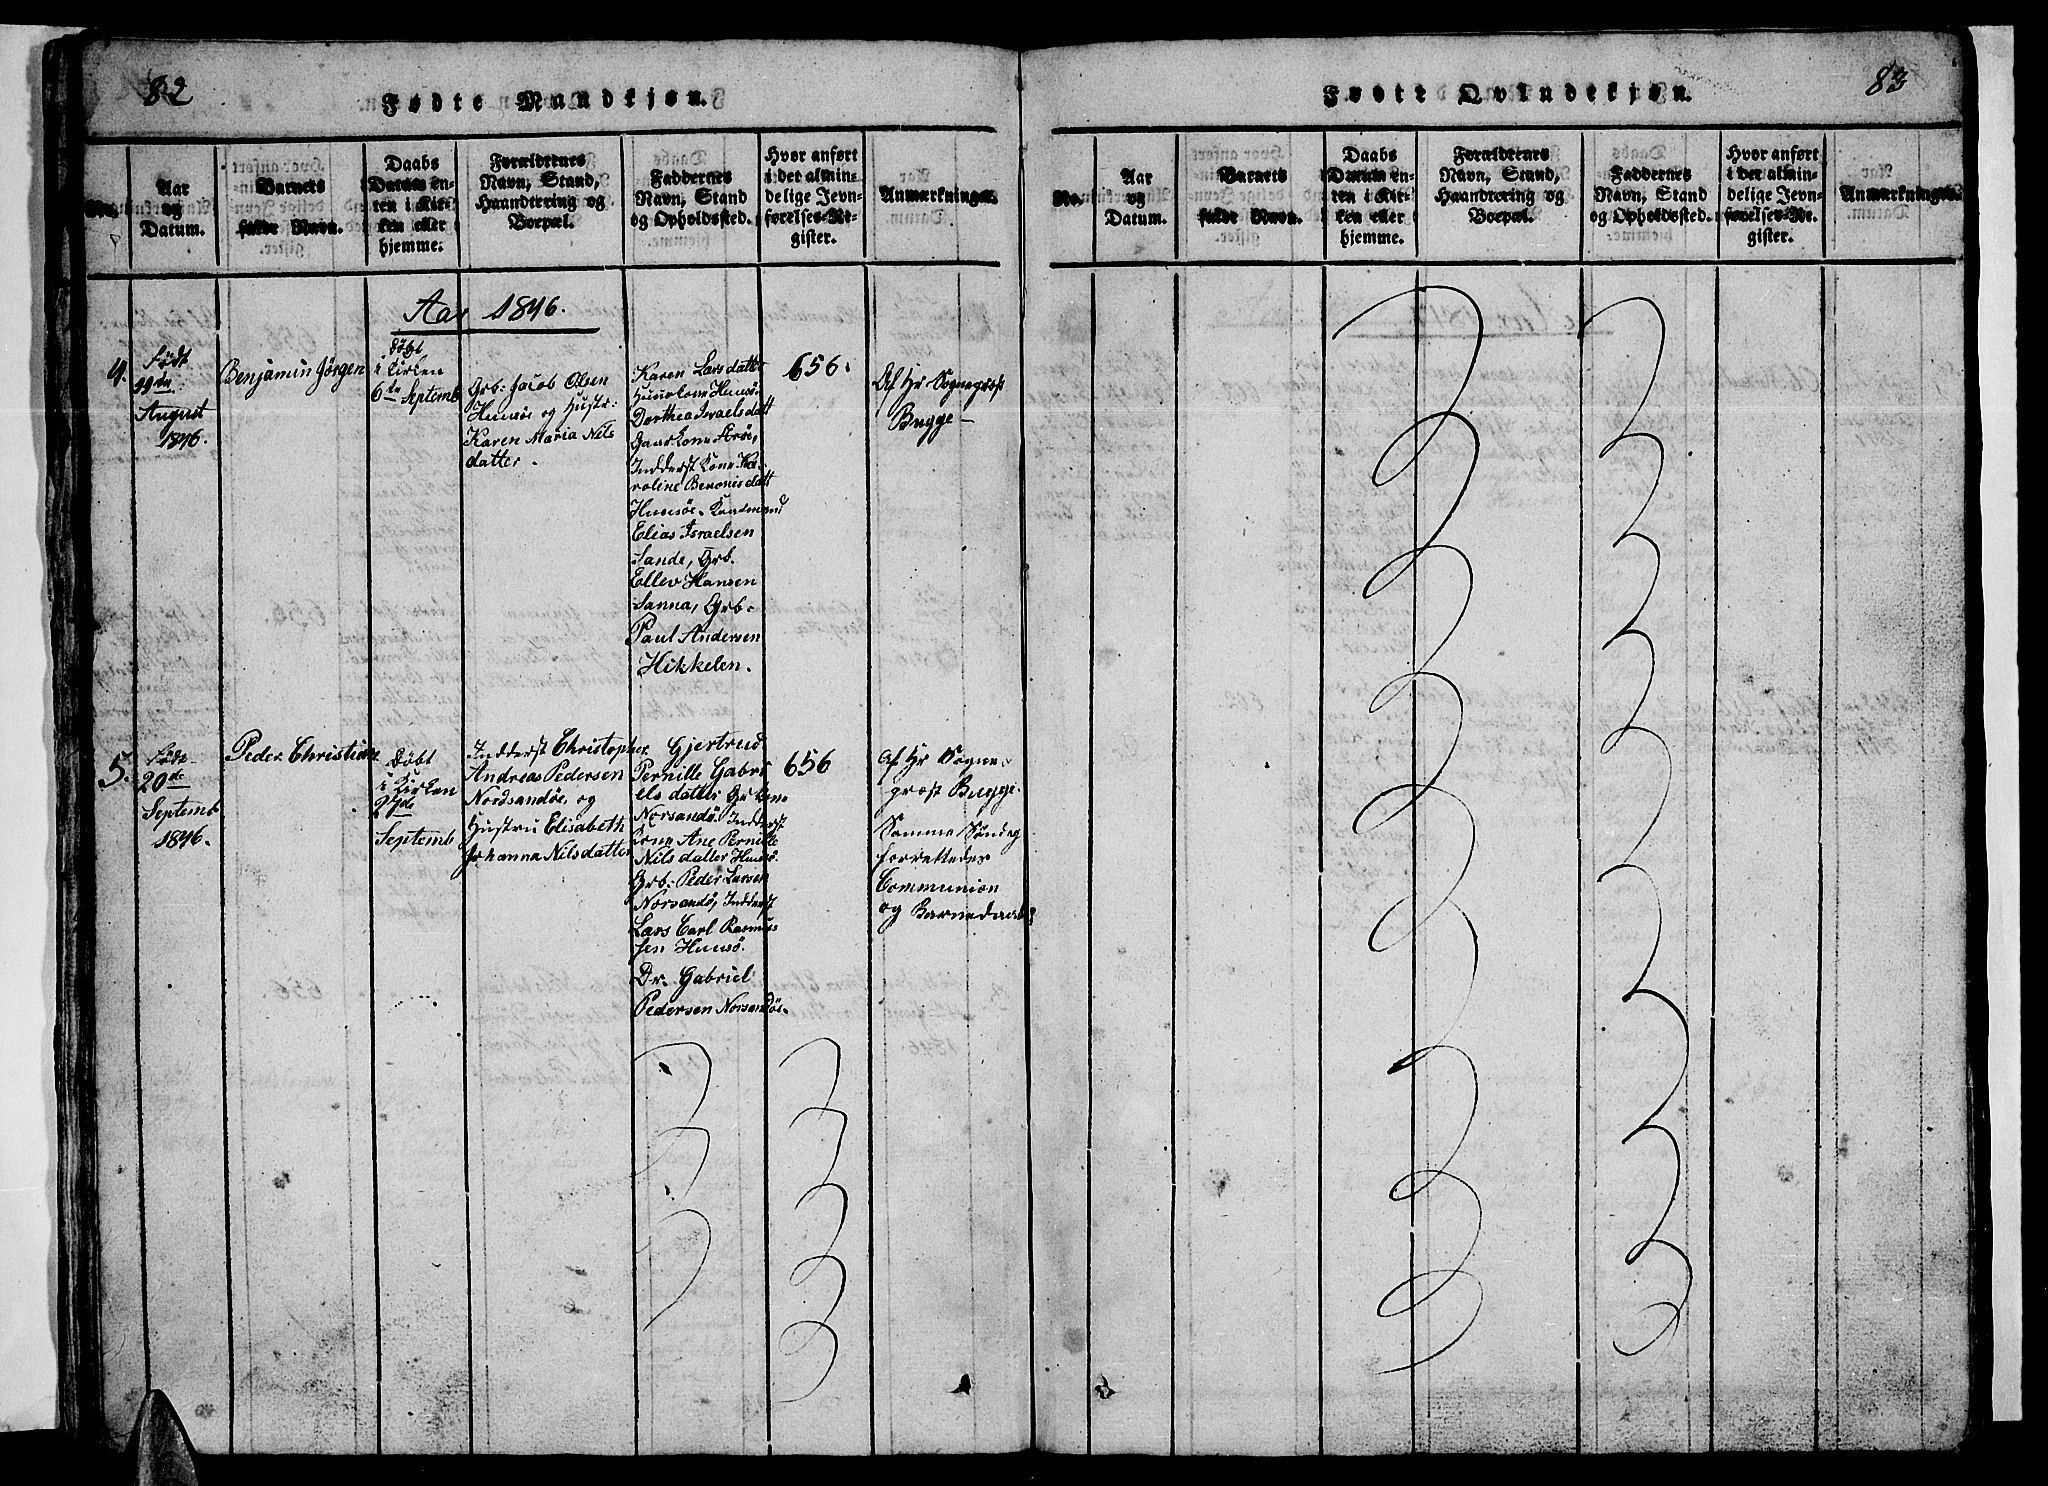 82
Fødte Mandkjøn.
No.
Aar
og
Datum.
Barnets
fulde Navn.
Daabs
Datum en-
ten i Kir-
ken eller
hjemme.
Forældrenes
Navn, Stand,
Haandtering og
Boepæl.
Faddernes
Navn, Stand
og Opholdssted.
Hvor anført
i det almin-
delige Jevn-
førelses-Re-
gister.
Anmærkninger.
Aar 1846.
4.
Født
19de
August
1846.
Benjamin Jörgen
Döbt
i Kirken
6te Septemb
Grb: Jacob Olsen
Huusöe og Hustr:
Karen Maria Nils
datter.
Karen Larsdatter
Huusöe
Dorthea Israelsdatt
Gaarkone
Indderst Kone Ka-
roline Benonisdatt
Huusöe.
Elias Israelsen
Sande, Grb.
Ellev Hansen
Sanna, Grb.
Paul Andersen
Hikkelen.
656.
Af Hr Sogneprost
Bugge
5.
Föd
20de
Septemb
1846.
Peder Christian
Döbt
i Kirken
27de
Septemb
Indderst Christopher
Andreas Pedersen
Nordsandöe, og
Hustru Elisabeth
Johanna Nilsdatter
Gjertrud
Pernille Gabri
elsdatter
Norsandö. Indderst
Kone Ane Pernille
Nilsdatter Huusö.
Grb: Peder Larsen
Norsandö, Indderst
Lars Carl Rasmus
sen Huusö.
Dr. Gabriel
Pedersen Norsandöe.
656
Af Hr Sogne-
prost Bugge.
Samme Söndag
forrettedes
Communion
og Barnedaab
83
Fødte Qvindekjøn.
No.
Aar
og
Datum.
Barnets
fulde Navn.
Daabs
Datum en-
ten i Kir-
ken eller
hjemme.
Forældrenes
Navn, Stand,
Haandtering og
Boepæl.
Faddernes
Navn, Stand
og Opholdssted.
Hvor anført
i det almin-
delige Jevn-
førelses-Re-
gister.
Anmærkninger.